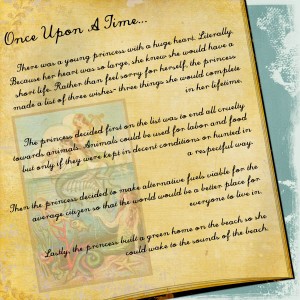 Once Upon A Time...
There was a young princess with a huge heart. Literally.
Because her heart was so large, she knew she would have a
short life. Rather than feel sorry for herself, the princess
made a list of three wishes- three things she would complete
in her lifetime.
The princess decided first on the list was to end all cruelty
towards animals. Animals could be used for labor and food
but only if they were kept in decent conditions or hunted in
a respectful way.
Then the princess decided to make alternative fuels viable for the
average citizen so that the world would be a better place for
everyone to live in.
Lastly, the princess built a green home on the beach so she
could wake to the sounds of the beach.